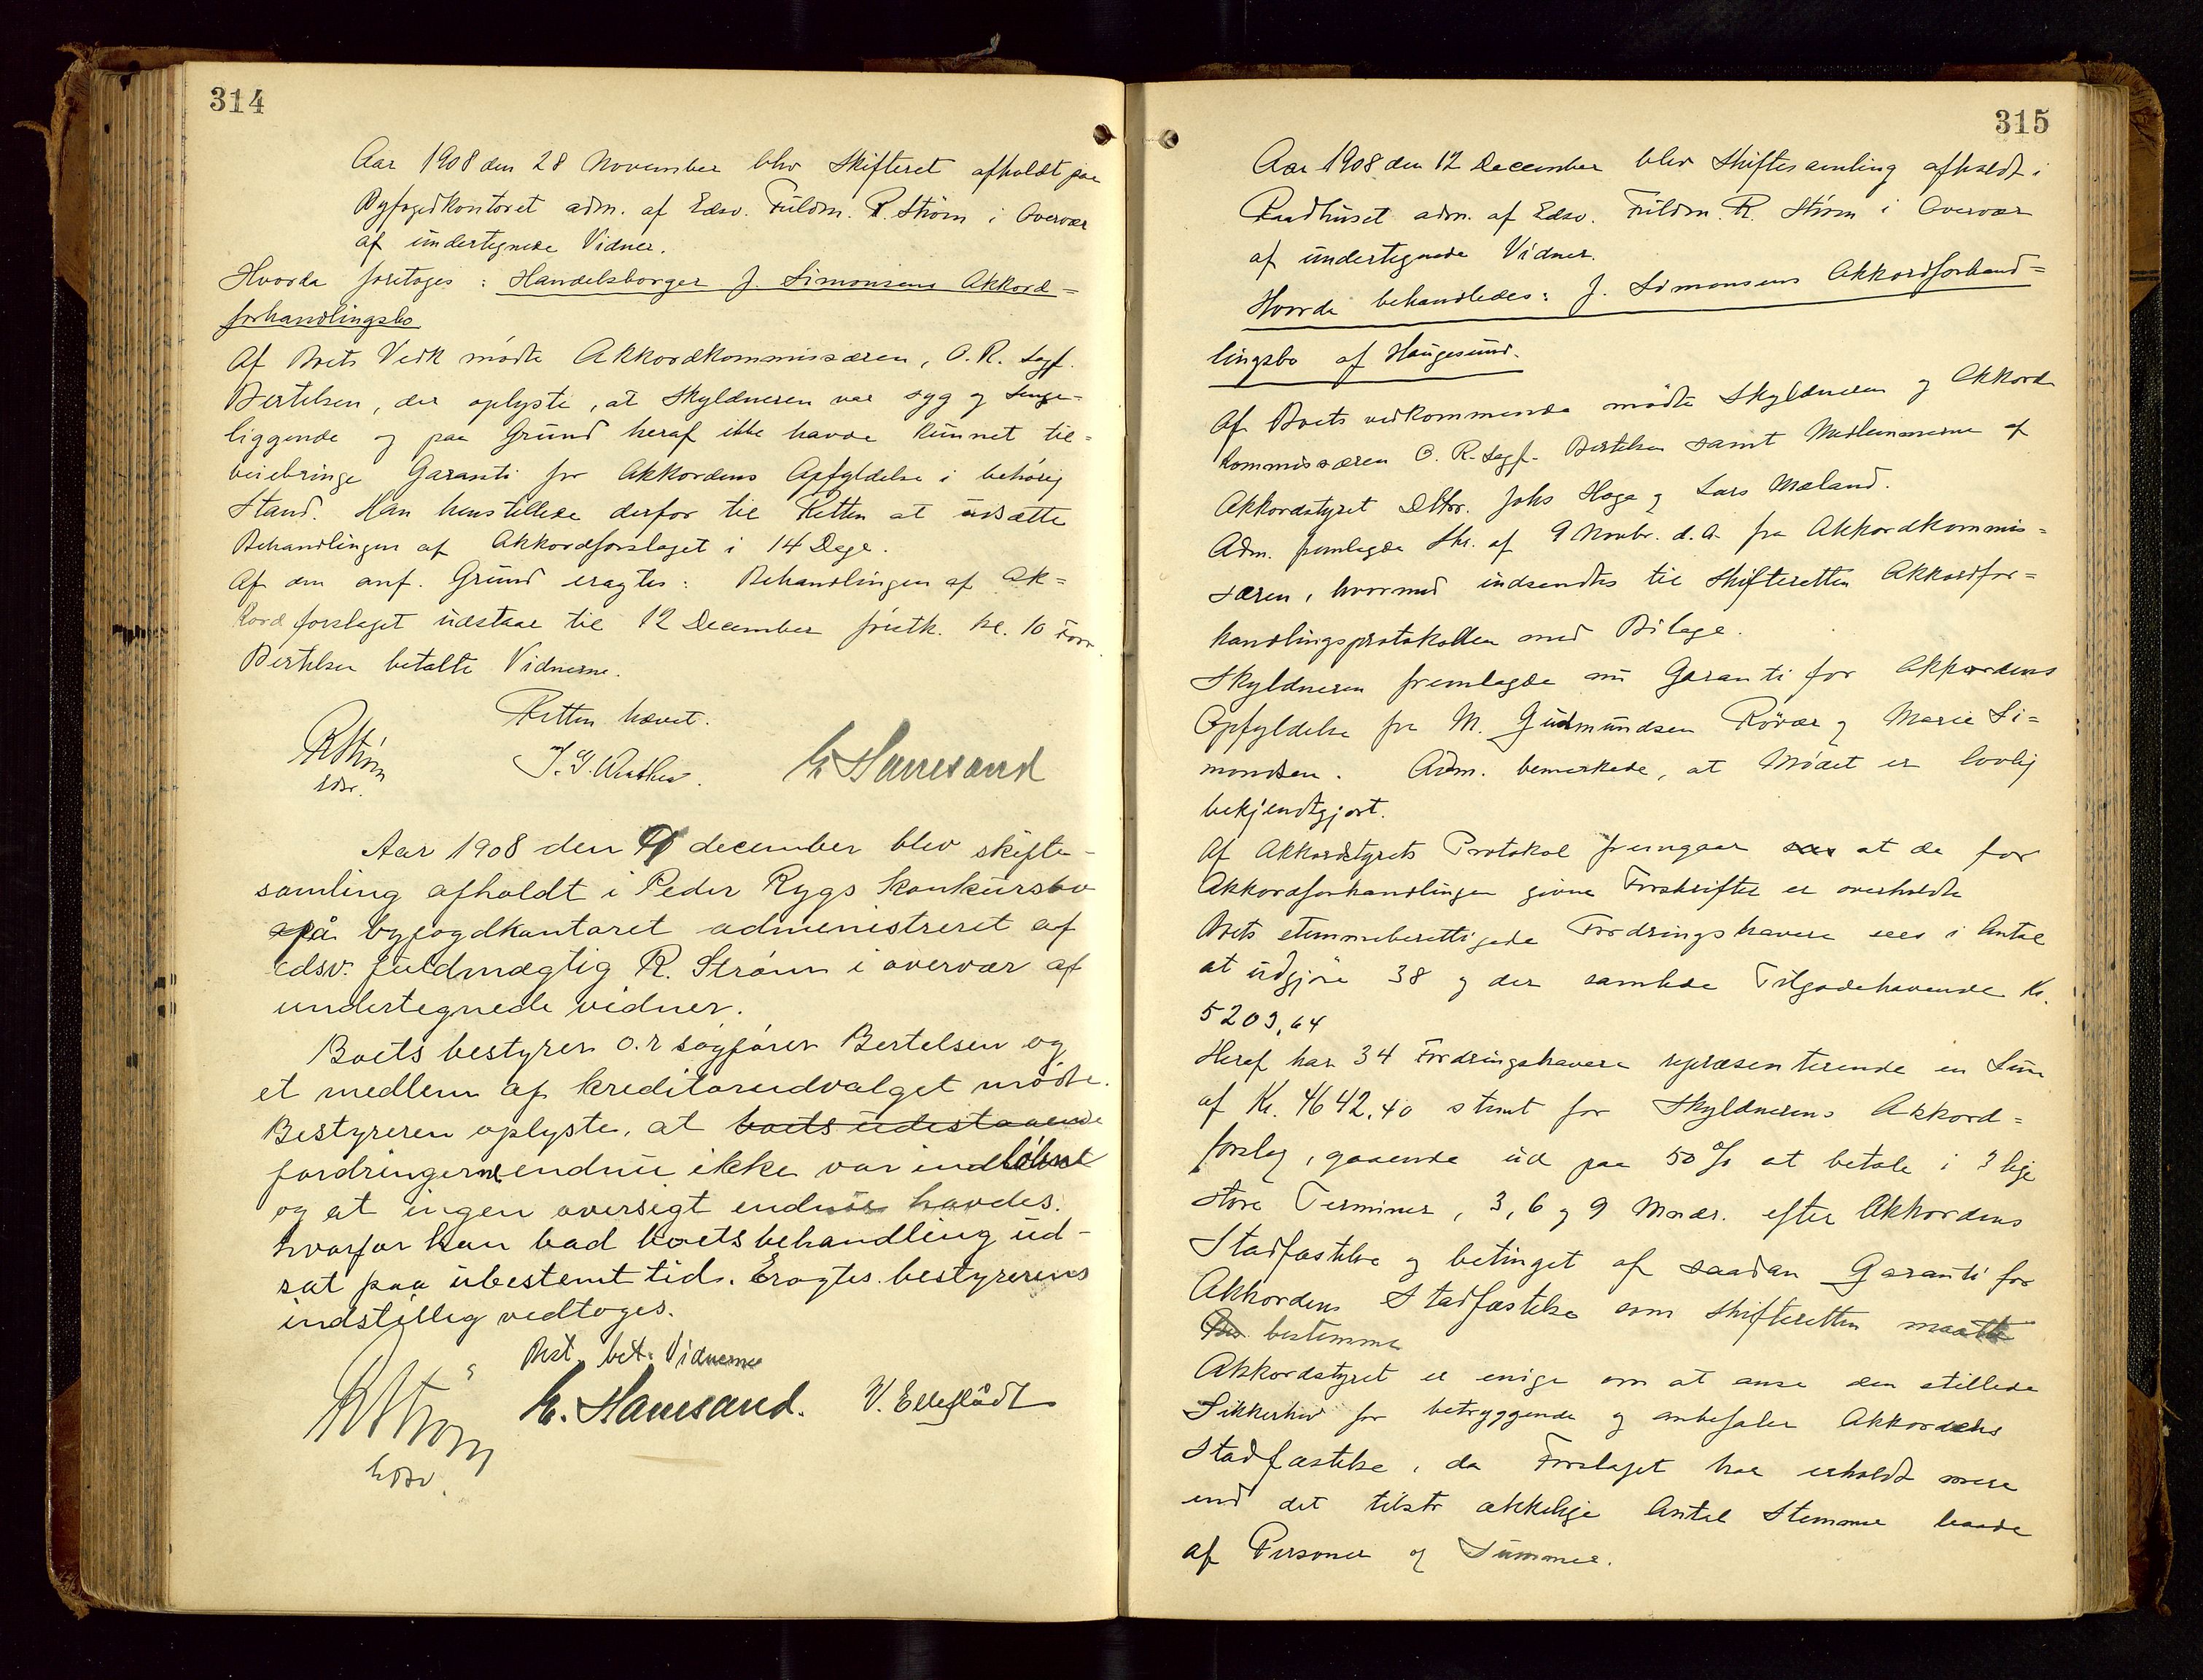 314
Aar 1908 den 28 November blev Skifteret afholdt paa
Byfogedkontoret adm. af Edsv. Fuldm. R. Strøm i Overvær
af undertegnede Vidner.
Hvorda foretoges: Handelsborger J. Simonsens Akkord=
forhandlingsbo
Af Boets Vedk mødte Akkordkommissæren, O. R. Sagf.
Bertelsen, der oplyste, at Skyldneren var syg og senge=
liggende og paa Grund heraf ikke havde kunnet til=
veiebringe Garanti for Akkordens Opfyldelse i behørig
Stand. Han henstillede derfor til Retten at udsætte
Behandlingen af Akkordforslaget i 14 Dage.
Af den anf. Grund eragtes: Behandlingen af Ak=
kordforslaget udstaar til 12 December førstk. kl. 10 Form.
Bertelsen betalte Vidnerne.
Retten hævet.
RStrøm
Edsv.
E Hanesand
Aar 1908 den december blev skifte-
samling afholdt i Peder Rygs konkursbo
på byfogdkontoret administreret af
edsv. fuldmægtig R. Strøm i overvær af
undertegnede vidner.
Boets bestyrer o.r sagfører Bertelsen og
et medlem af kreditorudvalget mødte.
Bestyreren oplyste, at boets udestaaende
fordringerne endnu ikke var
og at ingen oversigt endnu havdes.
hvorfor han bad boets behandling ud-
sat paa ubestemt tid. Eragtes bestyrerens
indstillig vedtoges.
Best. bet. Vidnerne
RStrøm
Edsv.
E. Hanesand. V. Elleflådt
315
Aar 1908 den 12 December blev Skiftesamling afholdt i
Raadhuset adm. af Edsv. Fuldm. R. Strøm i Overvær
af undertegnede Vidner.
Hvorda behandledes: J. Simonsens Akkordforhand=
lingsbo af Haugesund.
Af Boets vedkommende mødte Skyldneren og Akkord
kommissæren O. R. Sagf. Bertelsen samt Medlemmerne af
Akkordstyret Johs Haga og Lars Mæland.
Adm. fremlagde Skr. af 9 Novbr. d. A. fra Akkordkommis=
særen, hvormed indsendtes til Skifteretten Akkordfor=
handlingsprotokollen med Bilage.
Skyldneren fremlagde nu Garanti for Akkordens
Opfyldelse fra M. Gudmundsen Røvær og Marie Si=
monsen. Adm. bemerkede, at Mødet er lovlig
bekjendtgjort.
Af Akkordstyrets Protokol fremgaar at de for
Akkordforhandlingen givne Forskrifter er overholdte
Boets stemmeberettigede Fordringshavere sees i Antal
at udgjøre 38 og der samlede Tilgodehavende Kr.
5209,64
Heraf har 34 Fordringshavere repræsenterende en Sum
af Kr. 4642,40 stemt for Skyldnerens Akkord=
forslag, gaaende ud paa 50% at betale i 3 lige
store Terminer, 3, 6 og 9 Mndr. efter Akkordens
Stadfæstelse og betinget af saadan Garanti for
Akkordens Stadfæstelse som Skifteretten maatte
bestemme
Akkordstyret er enige om at anse den stillede
Sikkerhed for betryggende og anbefaler Akkordens
Stadfæstelse, da Forslaget har erholdt mere
end det tilstrækkelige Antal Stemmer baade
af Personer og Summer.